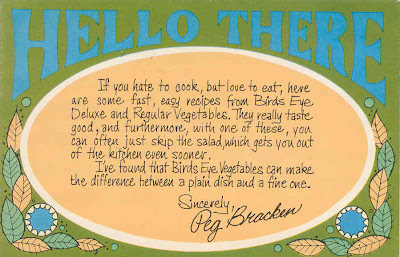 HELLO THERE
If you hate to cook, but love to eat, here
are some fast, easy recipes from Birds Eye
Deluxe and Regular Vegetables. They really taste
good, and furthermore, with one of these, you
can often just skip the salad, which gets you out
of the kitchen even sooner.
I've found that Birds Eye Vegetables can make
the difference between a plain dish and a fine one.
Sincerely,
Peg Bracken